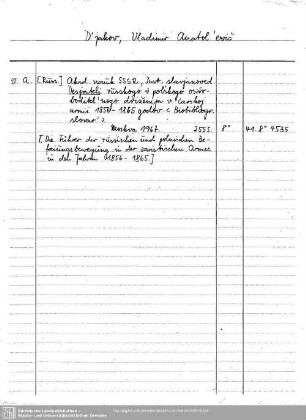 D'jakov, Vladimir Anatol'evič
VI. A. [Russ.] Akad. nauk SSSR, Inst. slavjanoved.
Dejateli russkogo i pol'skogo osvo-
boditel'nogo dviženija v carskoj
armii 1856-1865 godov <Biobibliogr.
slovar'>
Moskva 1967. 255 S. 8° 41. 8° 4535
[Die Führer der russischen und polnischen Be-
freiungsbewegung in der zaristischen Armee
in den Jahren (1856-1865.]
Sächsische Landesbibliothek –
Staats- und Universitätsbibliothek Dresden